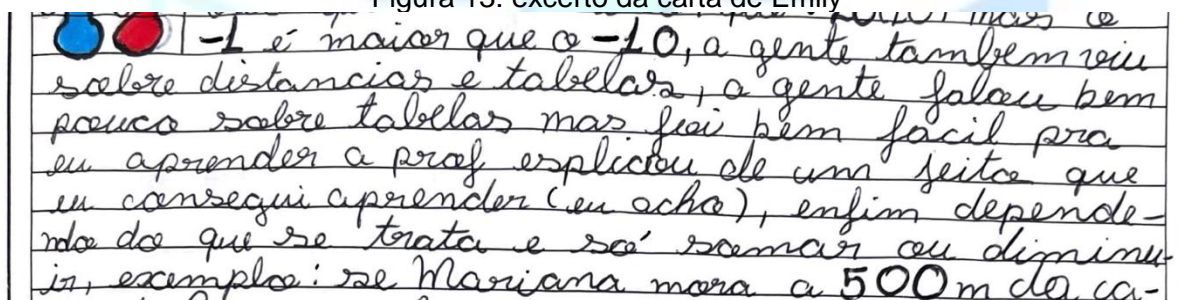 Figura 15: excerto da carta de Emily
mas o
-1 é maior que o -10, a gente tambem viu
sobre distancias e tabelas, a gente falou bem
pouco sobre tabelas mas foi bem facil pra
eu aprender a prof esplicou de um jeito que
eu consegui aprender (eu acho), enfim depende-
ndo do que se trata e só somar ou diminu-
ir, exemplo: se Mariana mora a 500m da ca-